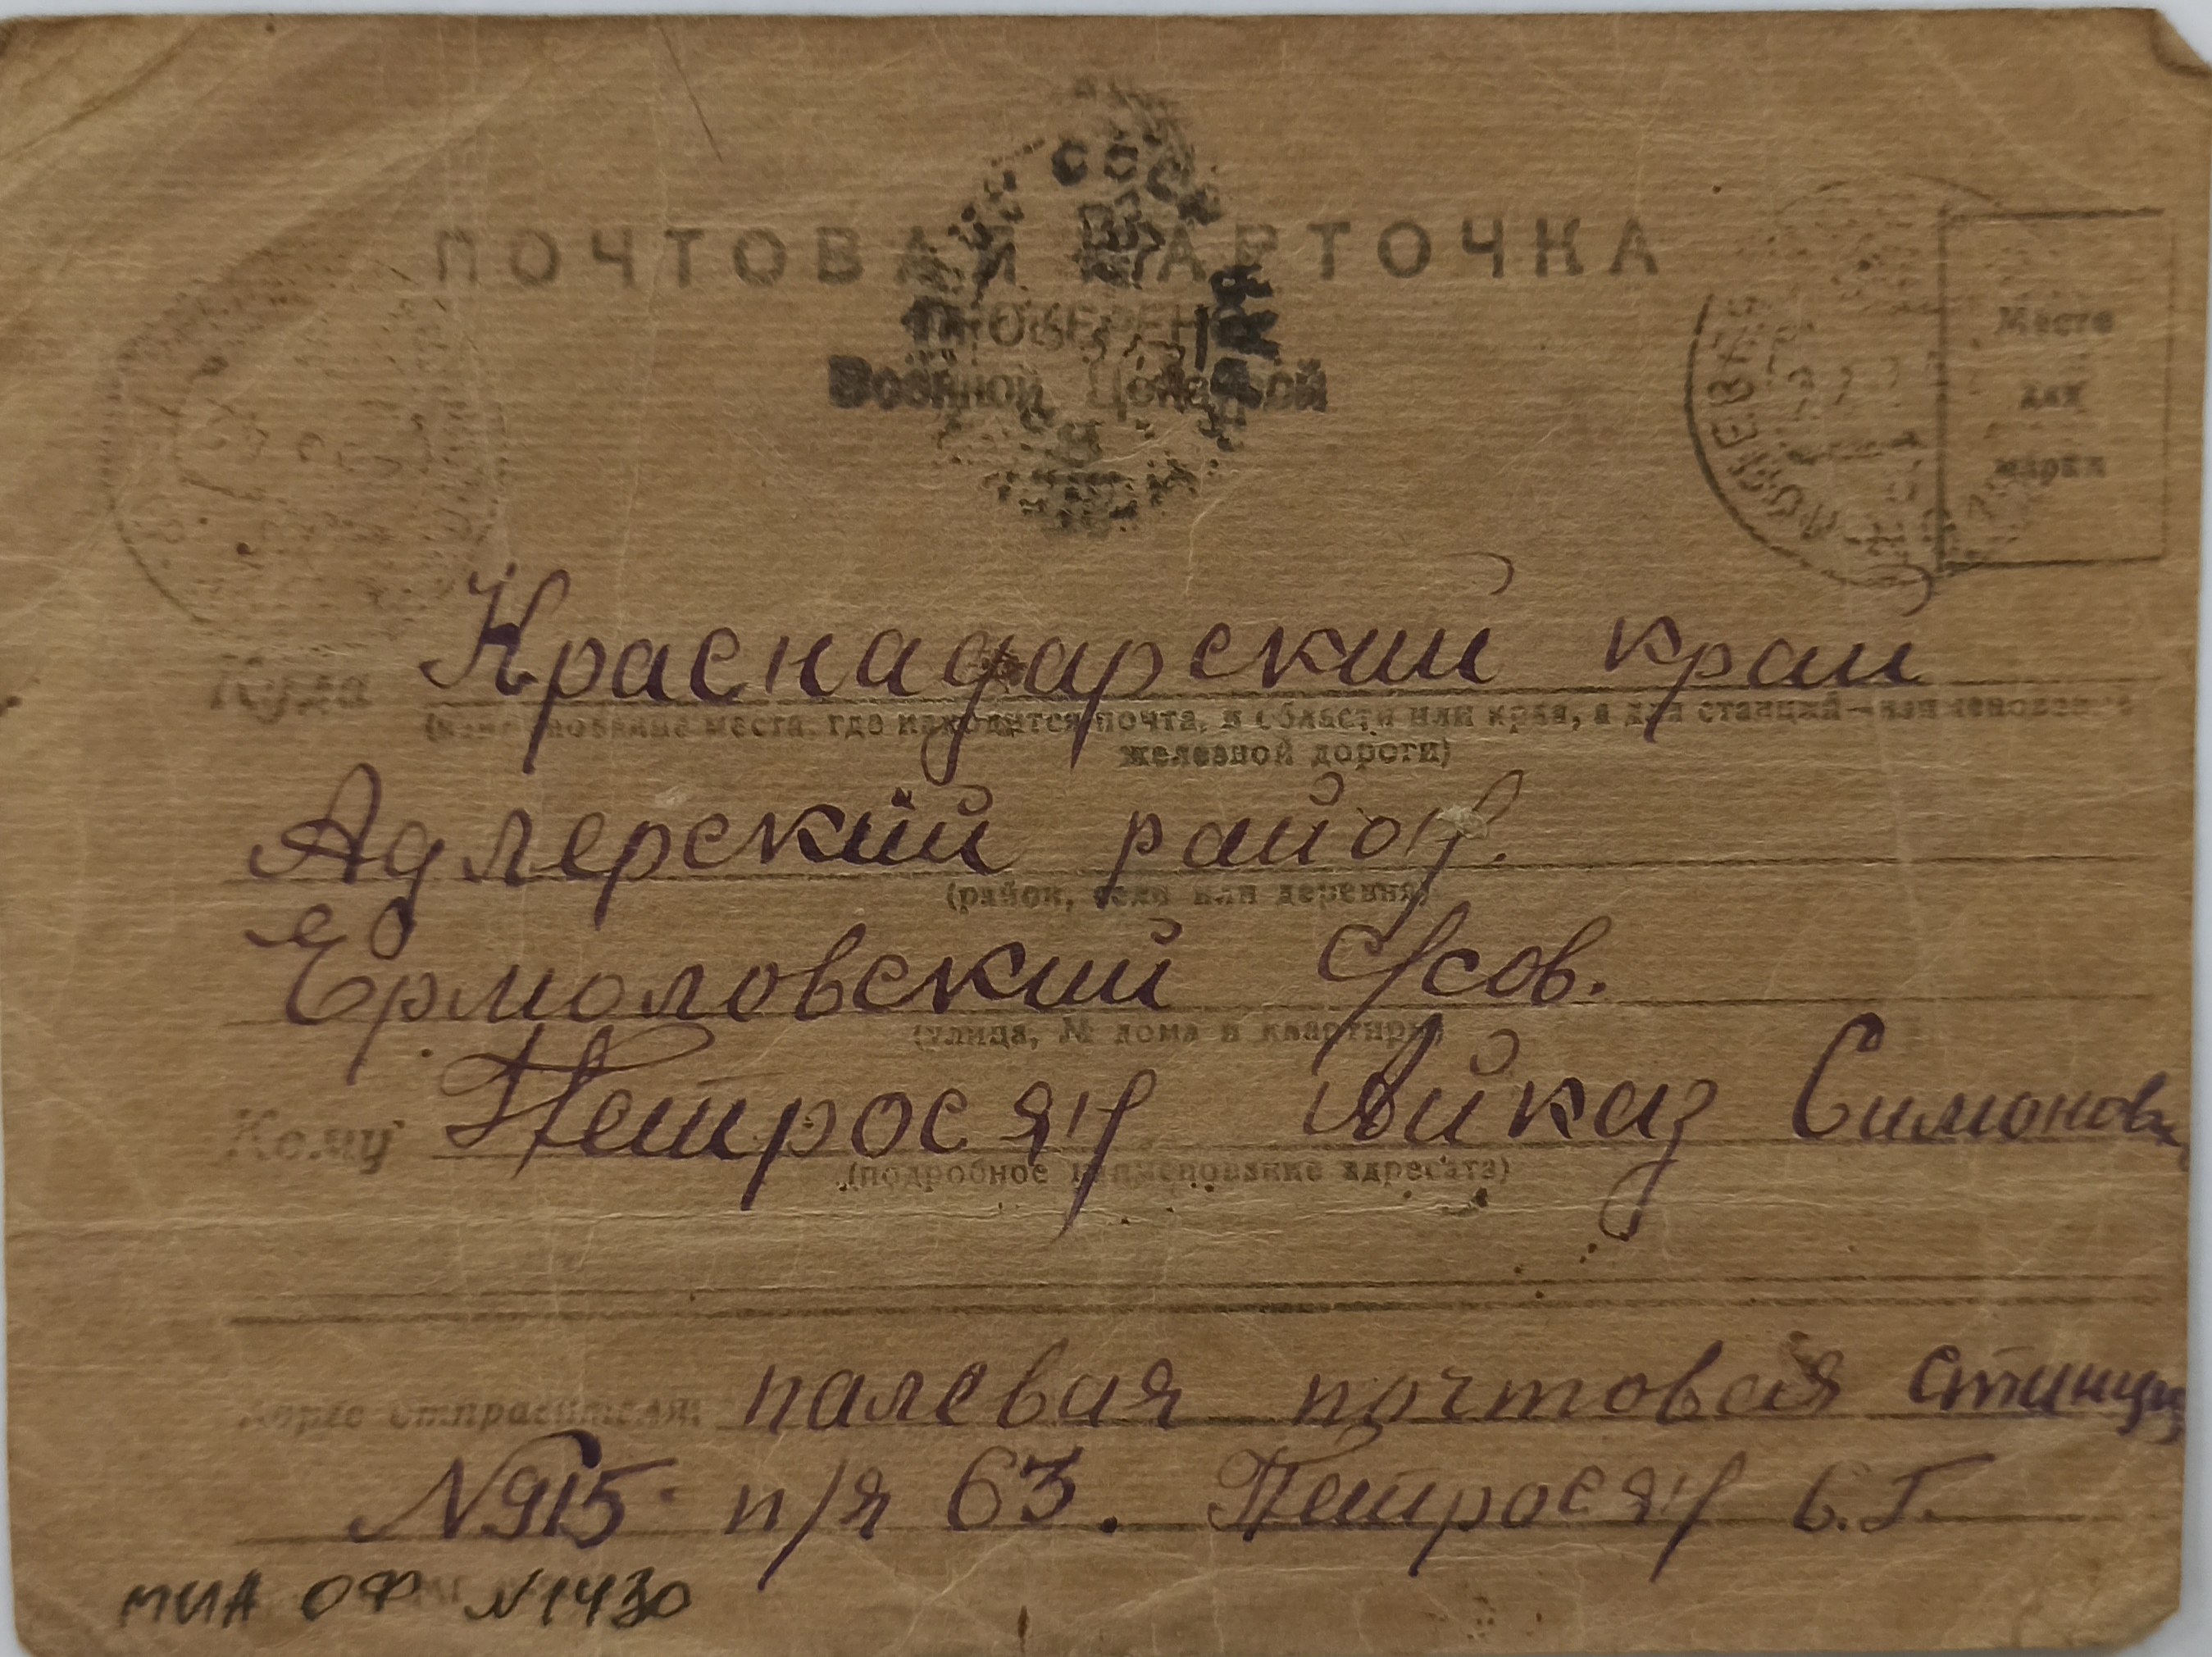 ПОЧТОВАЯ КАРТОЧКА
ПРОВЕРЕНО
Военной Цензурой
Место
для
марки
Куда Краснадарский край
(наименование места, где находится почта, и области или края, а для станций—наименование
железной дороги)
Адлерский район.
(район, село или деревня)
Ермоловский с/сов.
(улица, № дома и квартиры)
Кому Петросян Айказ Симонович
(подробное наименование адресата)
Адрес отправителя: палевая почтовая станция
№915 п/я 63. Петросян С.Г.
МИА ОФ №1430